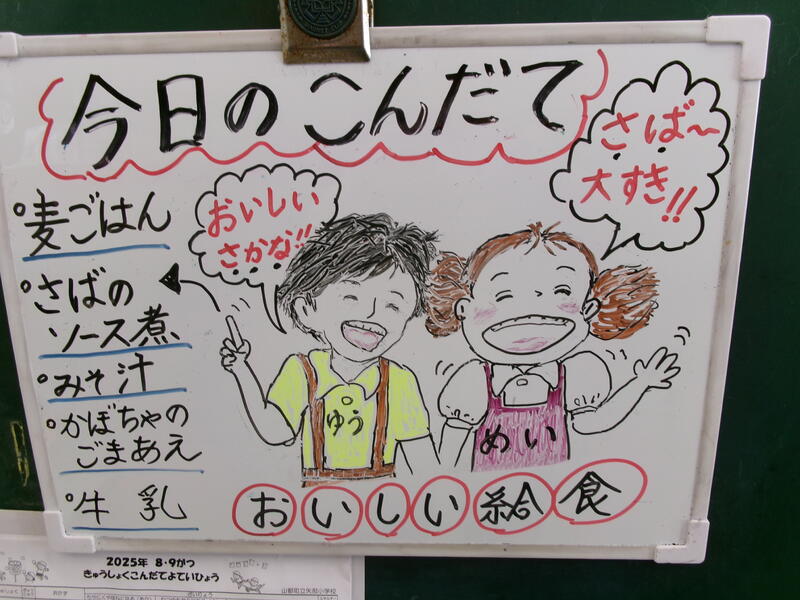 今日のこんだて
おいしい
さかな!!
さば〜
大すき!!
麦ごはん
さばの
ソース煮
みそ汁
かぼちゃの
ごまあえ
牛乳
ゆう
めい
おいしい給食
2025年 8・9がつ
きゅうしょくこんだてよていひょう
山都町立矢部小学校